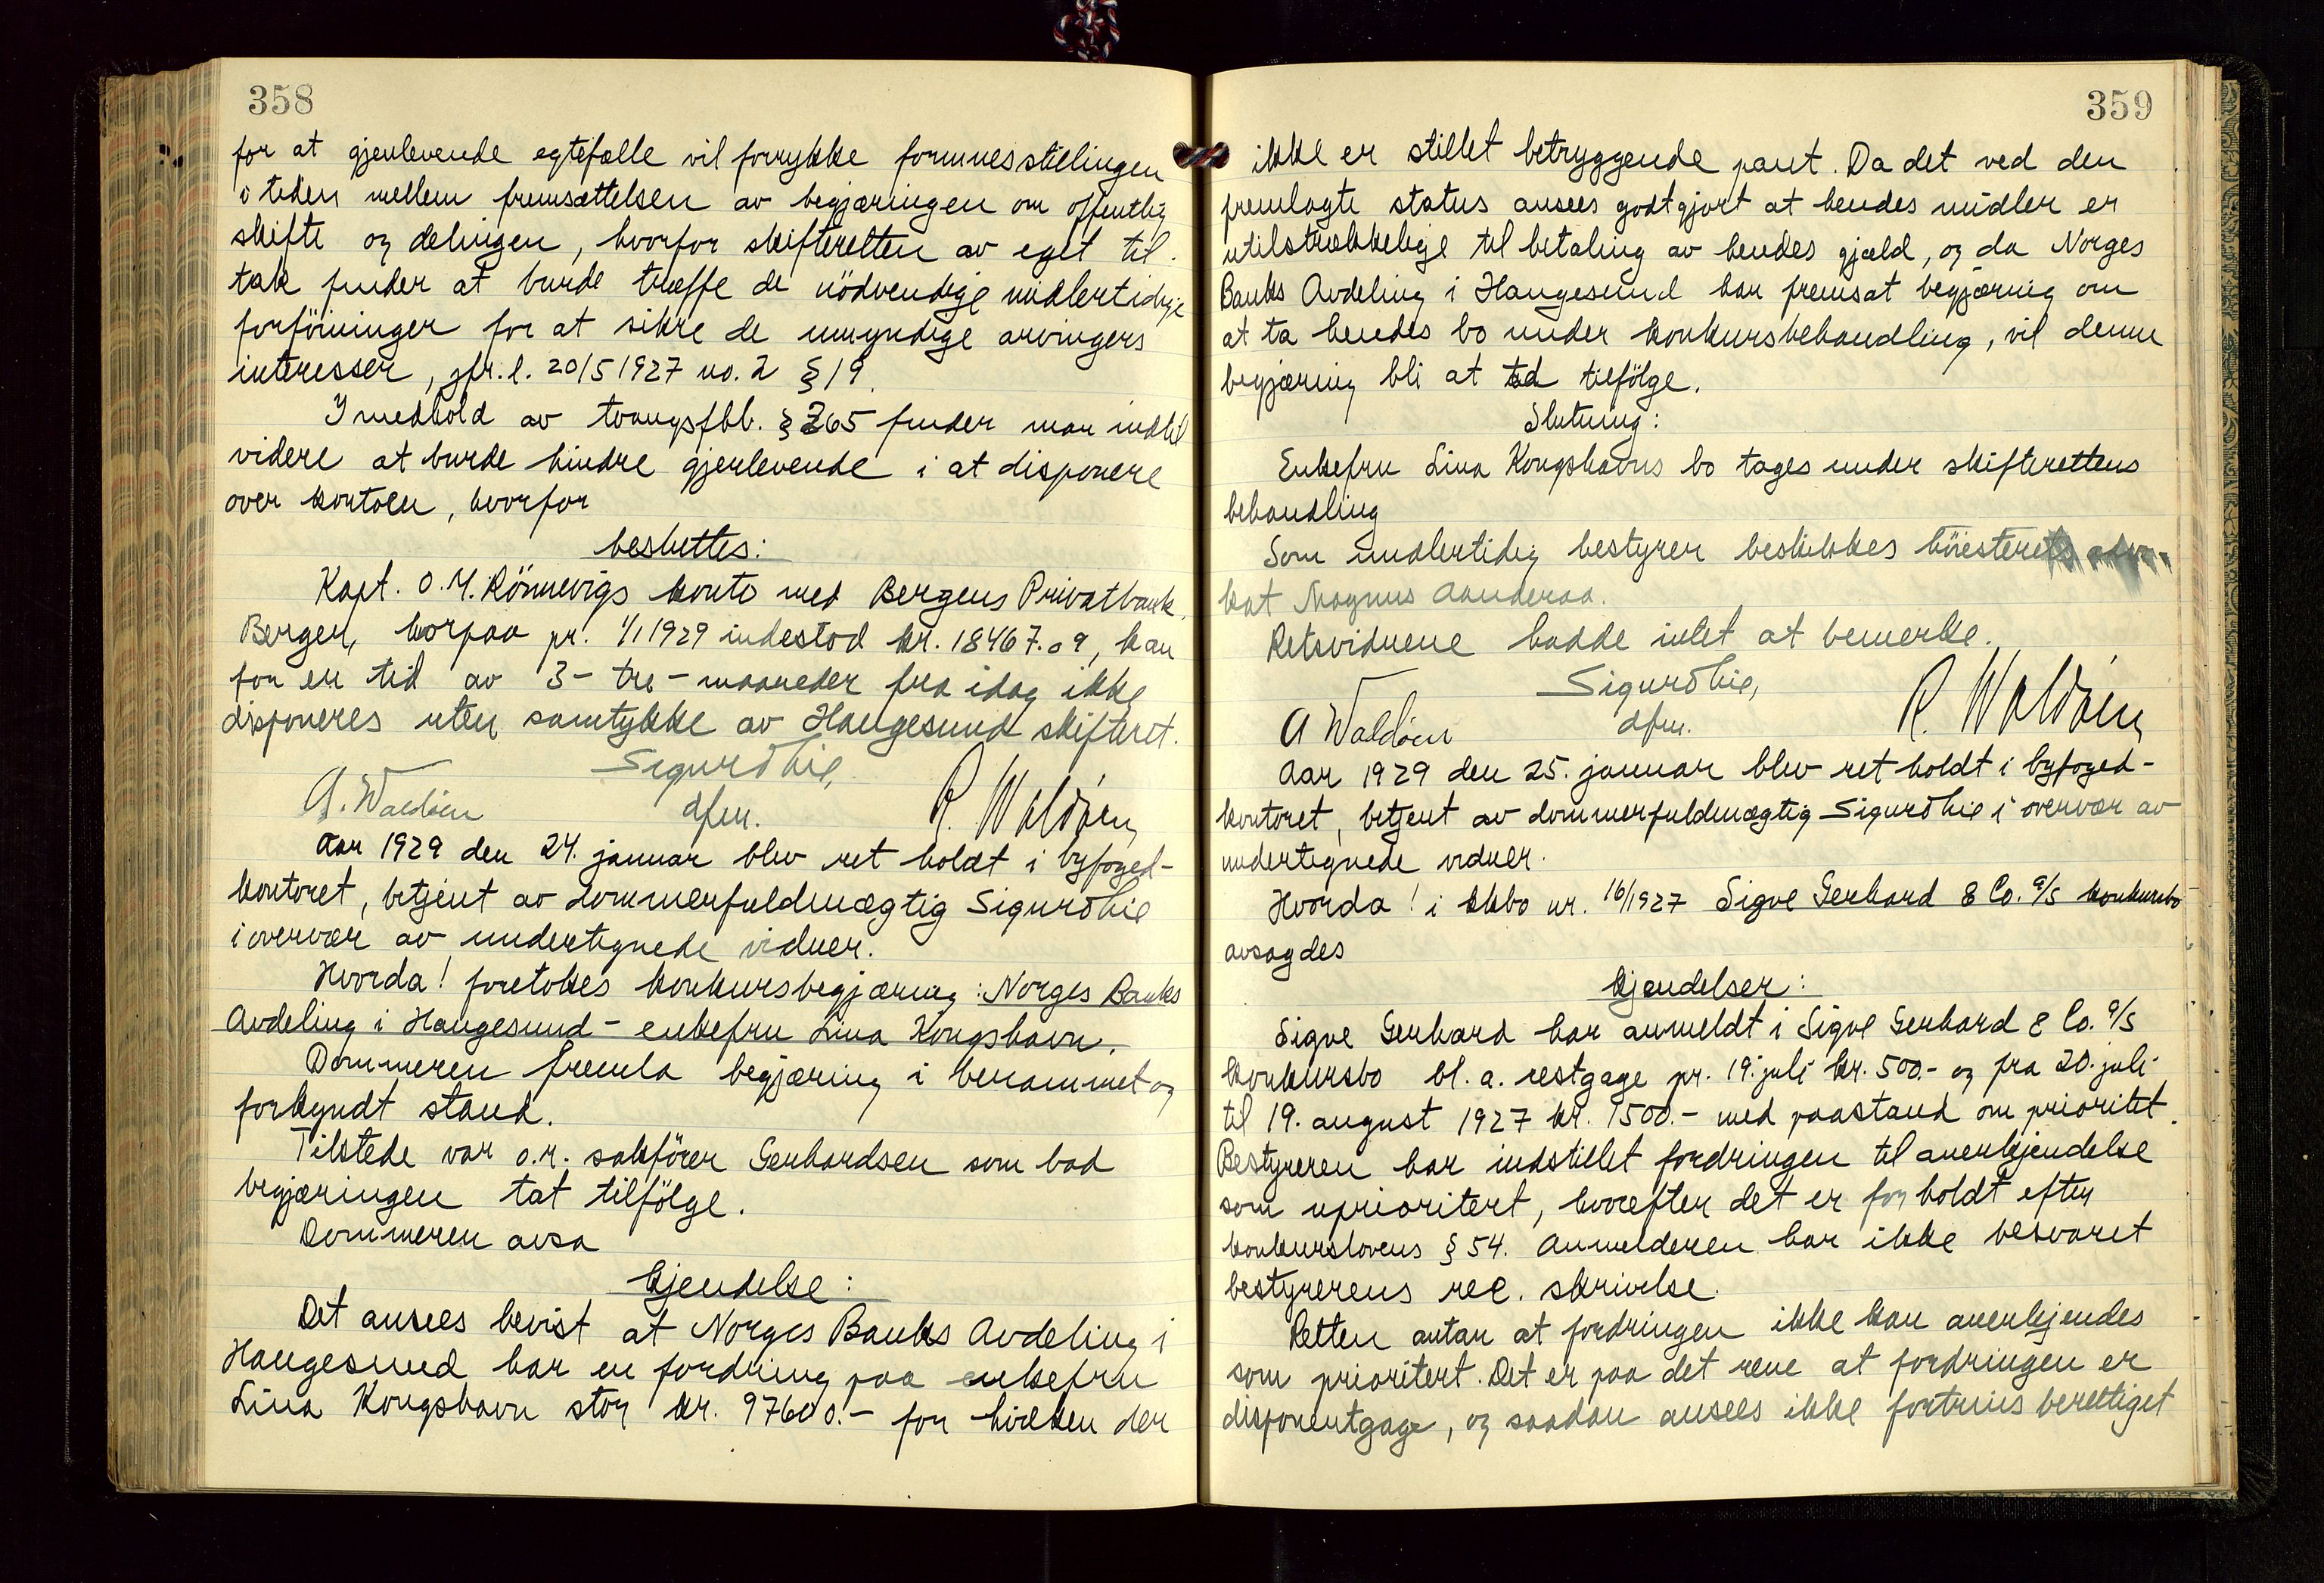 358
for at gjenlevende egtefælle vil forrykke formuesstillingen
i tiden mellem fremsættelsen av begjæringen om offentlig
skifte og delingen, hvorfor skifteretten av eget til-
tak finder at burde træffe de nödvendige midlertidige
forföininger for at sikre de umyndige arvingers
interesser, jfr. l. 20/5 1927 no. 2 § 19.
I medhold av tvangsfbl. § 265 finder man indtil
videre at burde hindre gjenlevende i at disponere
over kontoen, hvorfor
besluttes:
Kapt. O. M. Rönnevigs konto med Bergens Privatbank,
Bergen, hvorpaa pr. 1/1 1929 indestod kr. 18467.09, kan
for en tid av 3 - tre - maaneder fra idag ikke
disponeres uten samtykke av Haugesund skifteret.
Sigurd Lie,
A. Waldöen dfm. R. Waldöen,
Aar 1929 den 24. januar blev ret holdt i byfoged-
kontoret, betjent av dommerfuldmægtig Sigurd Lie
i overvær av undertegnede vidner.
Hvorda! foretokes konkursbegjæring: Norges Banks
Avdeling i Haugesund - enkefru Lina Kongshavn.
Dommeren fremla begjæring i berammet og
forkyndt stand.
Tilstede var o.r. sakförer Gerhardsen som bad
begjæringen tat tilfölge.
Dommeren avsa
kjendelse:
Det ansees bevist at Norges Banks Avdeling i
Haugesund har en fordring paa enkefru
Lina Kongshavn stor kr. 97600.- for hvilken der
359
ikke er stillet betryggende pant. Da det ved den
fremlagte status ansees godtgjort at hendes midler er
utilstrækkelige til betaling av hendes gjæld, og da Norges
Banks Avdeling i Haugesund har fremsat begjæring om
at ta hendes bo under konkursbehandling, vil denne
begjæring bli at ta tilfölge.
Slutning:
Enkefru Lina Kongshavns bo tages under skifterettens
behandling
Som midlertidig bestyrer beskikkes höiesterets advo-
kat Magnus Aanderaa.
Retsvidnene hadde intet at bemerke.
Sigurd Lie,
A Waldöen dfm. R. Waldöen,
Aar 1929 den 25. januar blev ret holdt i byfoged-
kontoret, betjent av dommerfuldmægtig Sigurd Lie i overvær av
undertegnede vidner.
Hvorda! i kkbo nr. 16/1927 Sigve Gerhard & Co. a/s konkursbo
avsagdes
kjendelser:
Sigve Gerhard har anmeldt i Sigve Gerhard & Co. a/s
konkursbo bl. a. restgage pr. 19. juli kr. 500.- og fra 20. juli
til 19. august 1927 kr. 1500.- med paastand om prioritet.
Bestyreren har indstillet fordringen til anerkjendelse
som uprioritert, hvorefter det er forholdt efter
konkurslovens § 54. Anmelderen har ikke besvaret
bestyrerens rec. skrivelse.
Retten antar at fordringen ikke kan anerkjendes
som prioritert. Det er paa det rene at fordringen er
disponentgage, og saadan ansees ikke fortrinsberettiget